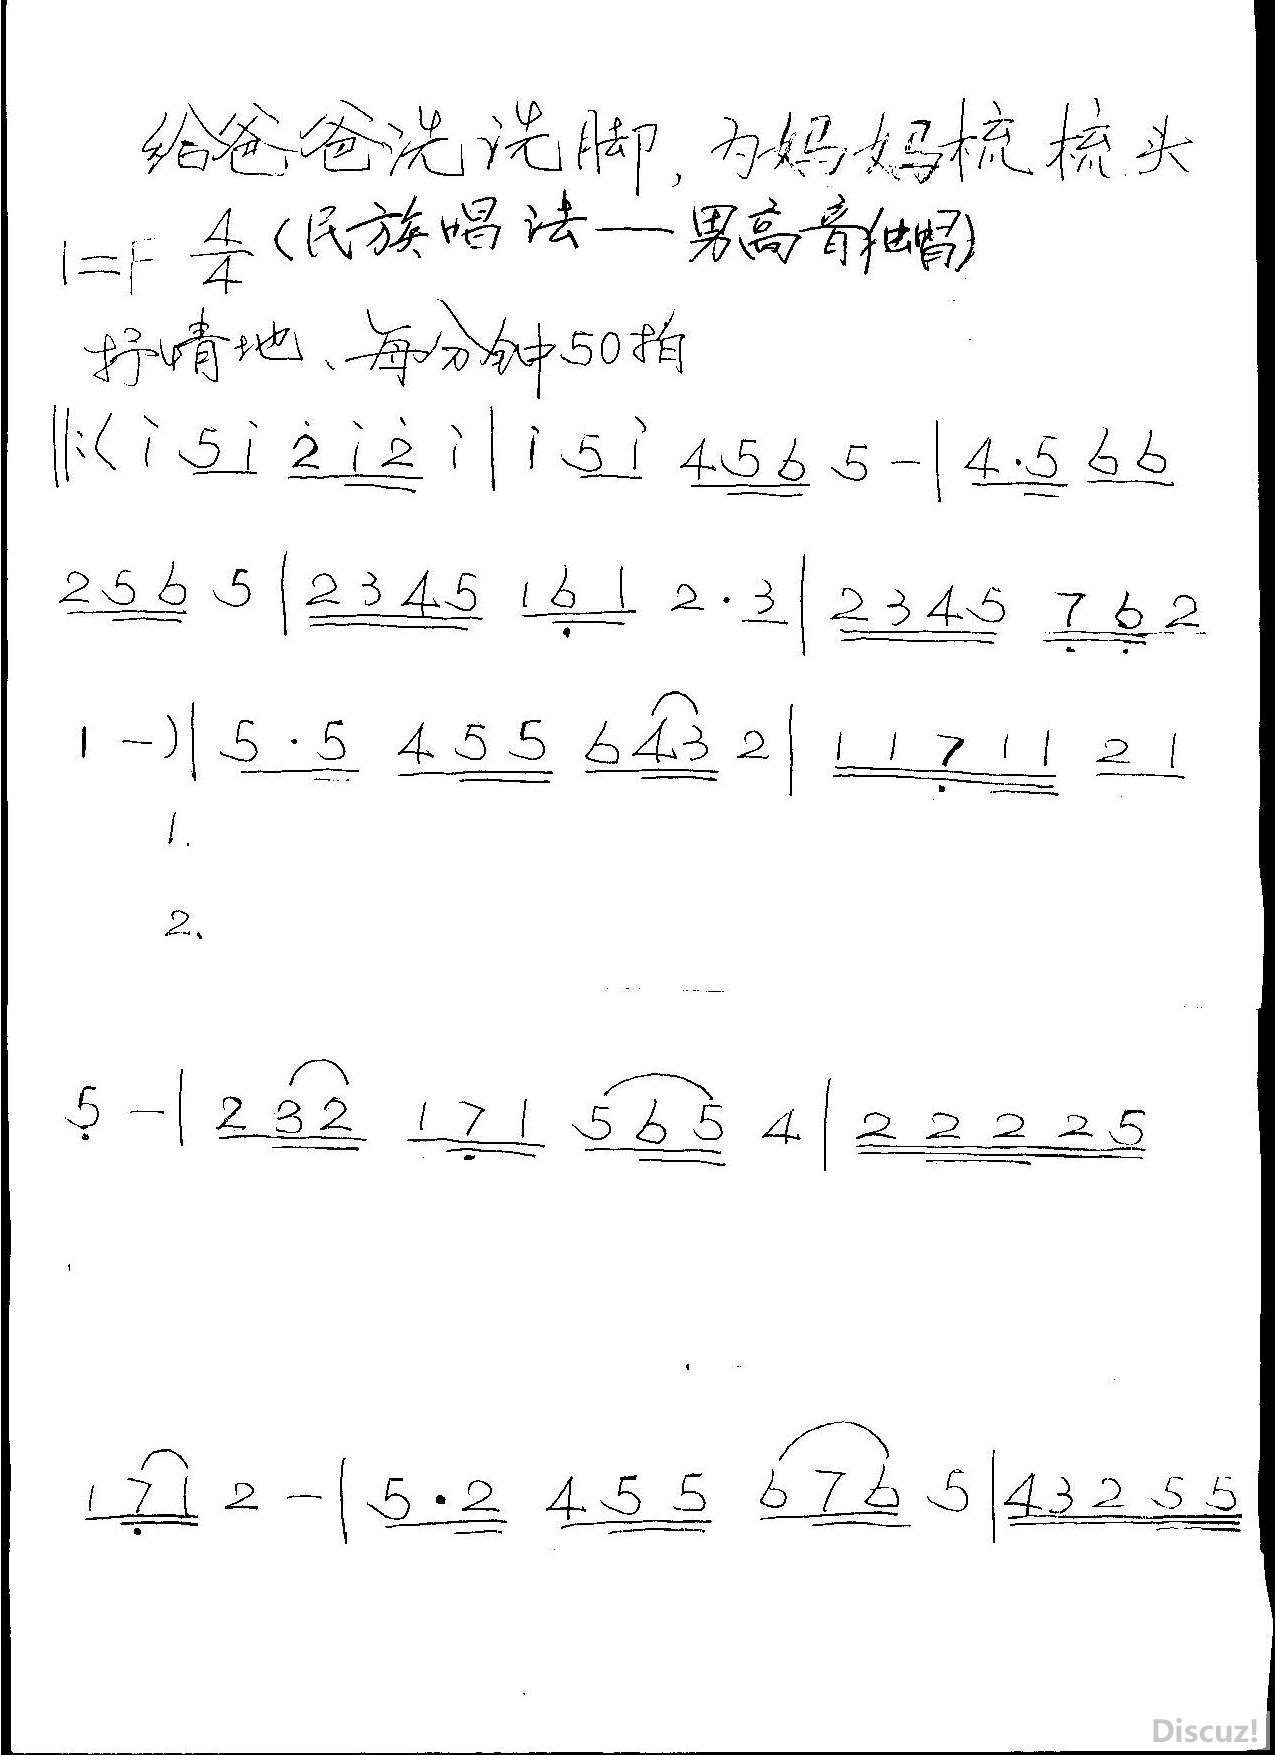 给爸爸洗洗脚,为妈妈梳梳头
1=F 4/4 (民族唱法—男高音独唱)
抒情地、每分钟50拍
‖:( i 5 i 2̇ i 2̇ i | i 5 i 4 5 6 5 - | 4 · 5 6 6
2 5 6 5 | 2 3 4 5 1 6̣ 1 2 · 3 | 2 3 4 5 7̣ 6̣ 2
1 - ) | 5 · 5 4 5 5 6 4 3 2 | 1 1 7̣ 1 1 2 1
1.
2.
5̣ - | 2 3 2 1 7̣ 1 5 6 5 4 | 2 2 2 2 5
1 7̣ 1 2 - | 5 · 2 4 5 5 6 7 6 5 | 4 3 2 5 5
Discuz!